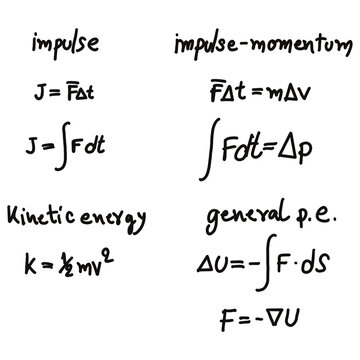 impulse
J = F̅Δt
J = ∫Fdt
impulse-momentum
F̅Δt = mΔv
∫Fdt = Δp
Kinetic energy
k = ½mv²
general p.e.
ΔU = -∫F·dS
F = -∇U